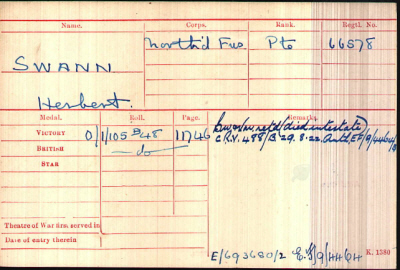 Name. Corps. Rank. Regtl. No.
North'd Fus Pte 66578
SWANN
Herbert.
Medal. Roll. Page. Remarks.
VICTORY O/1/105 B48 11746 retd (died intestate)
BRITISH —do— C.R.V. 488/B 29.8.22. Auth,
STAR
Theatre of War first served in
Date of entry therein
E/693680/2 K. 1380